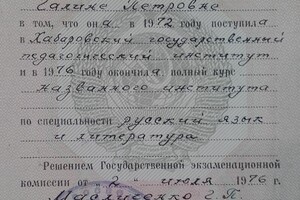 Галине Петровне
в том, что она в 1972 году поступила
в Хабаровский государственный
педагогический институт
и в 1976 году окончила полный курс
названного института
по специальности русский язык
и литература
Решением Государственной экзаменационной
комиссии от " 2 " июля 1976 г.
Г. П.